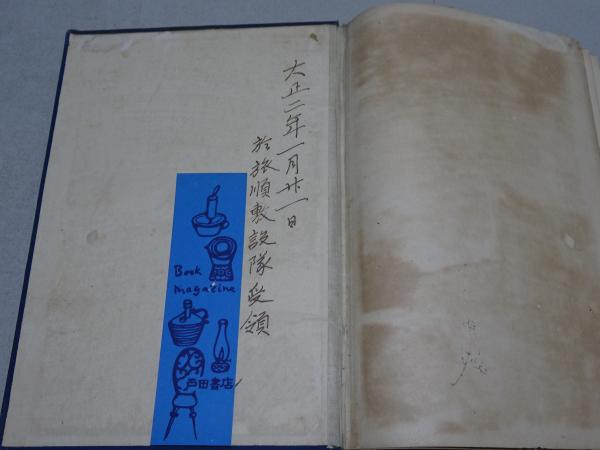 大正二年一月廿一日
於旅順敷設隊受領
Book
magazine
戸田書店